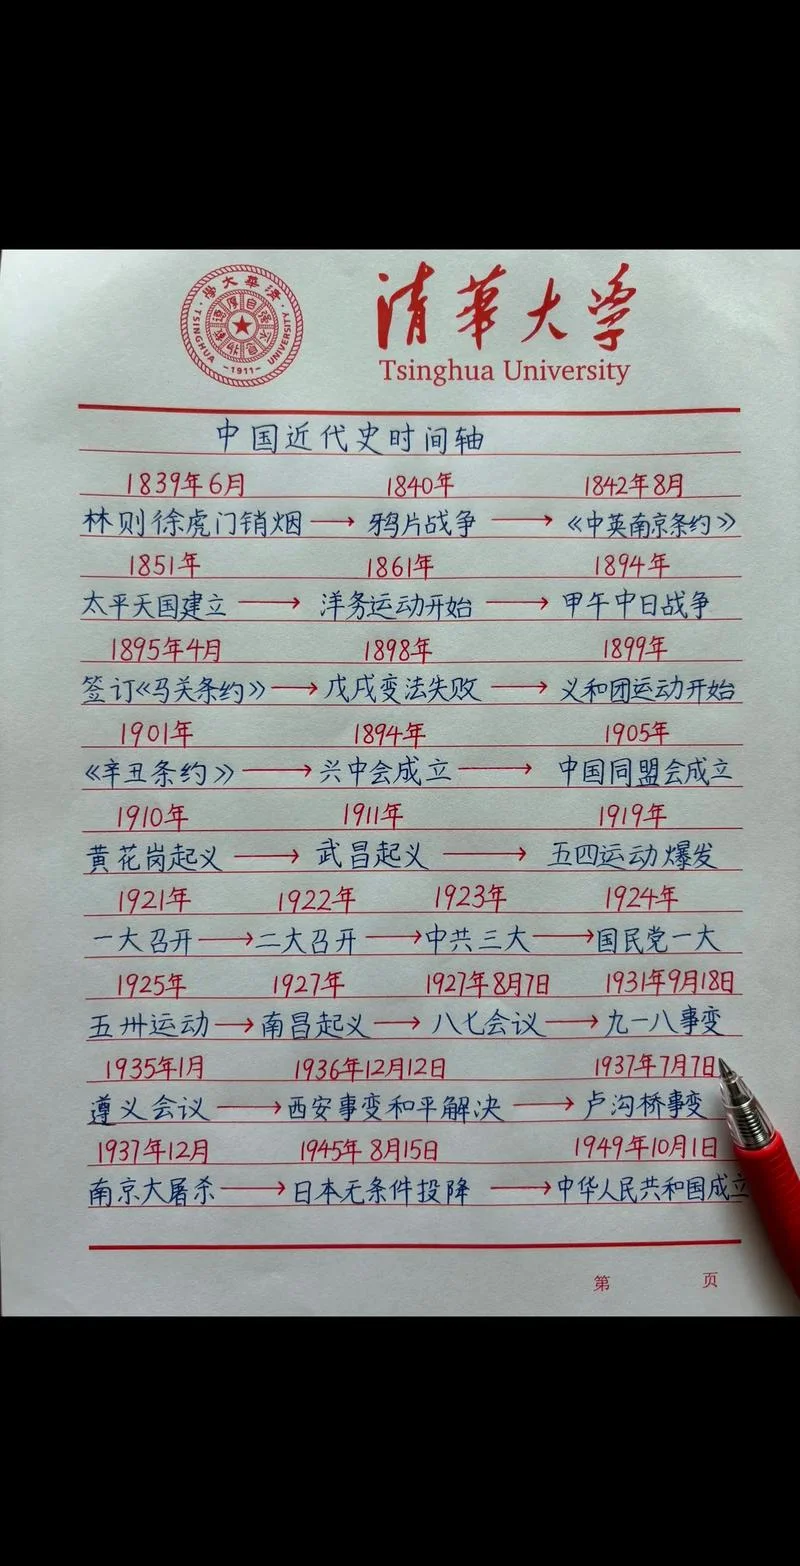 清華大学
Tsinghua University
中国近代史时间轴
1839年6月 1840年 1842年8月
林则徐虎门销烟 → 鸦片战争 → 《中英南京条约》
1851年 1861年 1894年
太平天国建立 → 洋务运动开始 → 甲午中日战争
1895年4月 1898年 1899年
签订《马关条约》→ 戊戌变法失败 → 义和团运动开始
1901年 1894年 1905年
《辛丑条约》→ 兴中会成立 → 中国同盟会成立
1910年 1911年 1919年
黄花岗起义 → 武昌起义 → 五四运动爆发
1921年 1922年 1923年 1924年
一大召开 → 二大召开 → 中共三大 → 国民党一大
1925年 1927年 1927年8月7日 1931年9月18日
五卅运动 → 南昌起义 → 八七会议 → 九一八事变
1935年1月 1936年12月12日 1937年7月7日
遵义会议 → 西安事变和平解决 → 卢沟桥事变
1937年12月 1945年8月15日 1949年10月1日
南京大屠杀 → 日本无条件投降 → 中华人民共和国成立
第 页
大學
TSINGHUA UNIVERSITY
-1911-